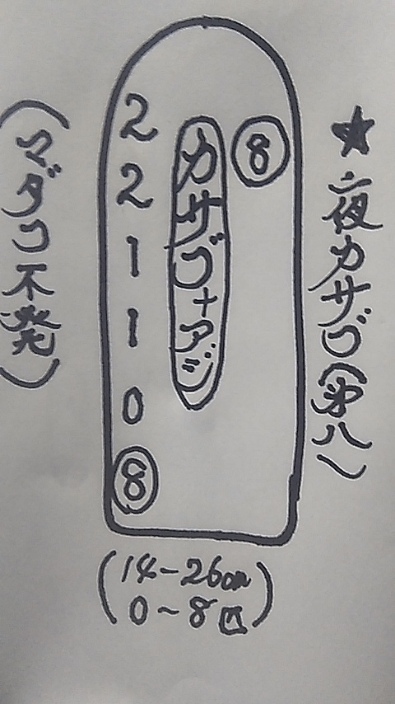 ★夜カサゴ(第八)
⑧
カサゴ+アジ
2
2
1
1
0
⑧
(マダコ不発)
(14-26cm
0~8匹)